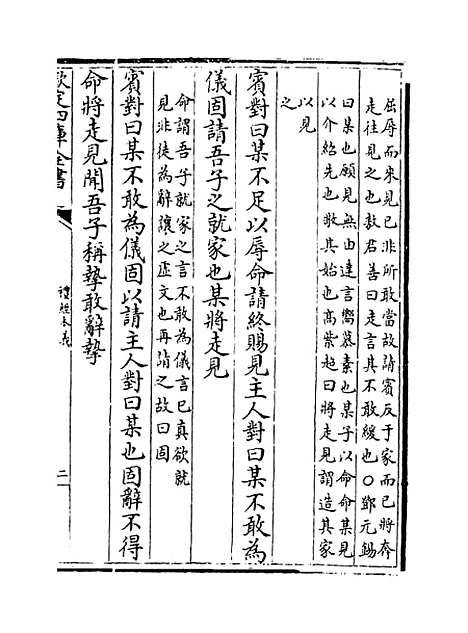 屈辱而來見已非所敢當故請賓反于家而已將奔
走往見之也敖君善曰走言其不敢緩也○鄧元錫
曰某也願見無由達言嚮慕素也某子以命命某見
以介紹先也敬其始也髙紫超曰將走見謂造其家
以見
之
賓對曰某不足以辱命請終賜見主人對曰某不敢為
儀固請吾子之就家也某將走見
命謂吾子就家之言不敢為儀言已真欲就
見非徒為辭讓之虚文也再請之故曰固
賓對曰某不敢為儀固以請主人對曰某也固辭不得
命將走見聞吾子稱摯敢辭摯
欽定四庫全書
禮經本義
二